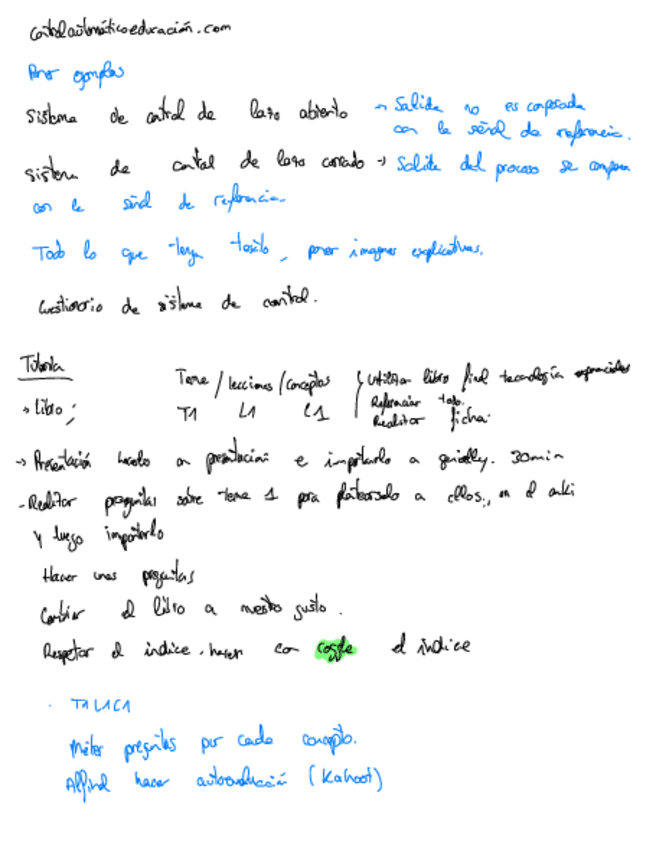 controlautomáticoeducación.com
Poner ejemplos
Sistema de control de lazo abierto → Salida no es comparada
con la señal de referencia.
Sistema de control de lazo cerrado → Salida del proceso se compara
con la señal de referencia.
Todo lo que tenga texto, poner imagenes explicativas.
Cuestionario de sistema de control.
Tutoria
Tema / lecciones / conceptos
Utilizar libro final tecnología
→ libro:
T1 L1 C1
Referenciar todo.
Realizar ficha.
→ Presentación hacerlo en presentación e importarlo a genially. 30min
- Realizar preguntas sobre tema 1 para plateárselo a ellos, en el anki
y luego importarlo
Hacer unas preguntas
Cambiar el libro a nuestro gusto.
Respetar el índice. hacer con coggle el índice
· T1 L1 C1
Meter preguntas por cada concepto.
Al final hacer autoevaluación (Kahoot)